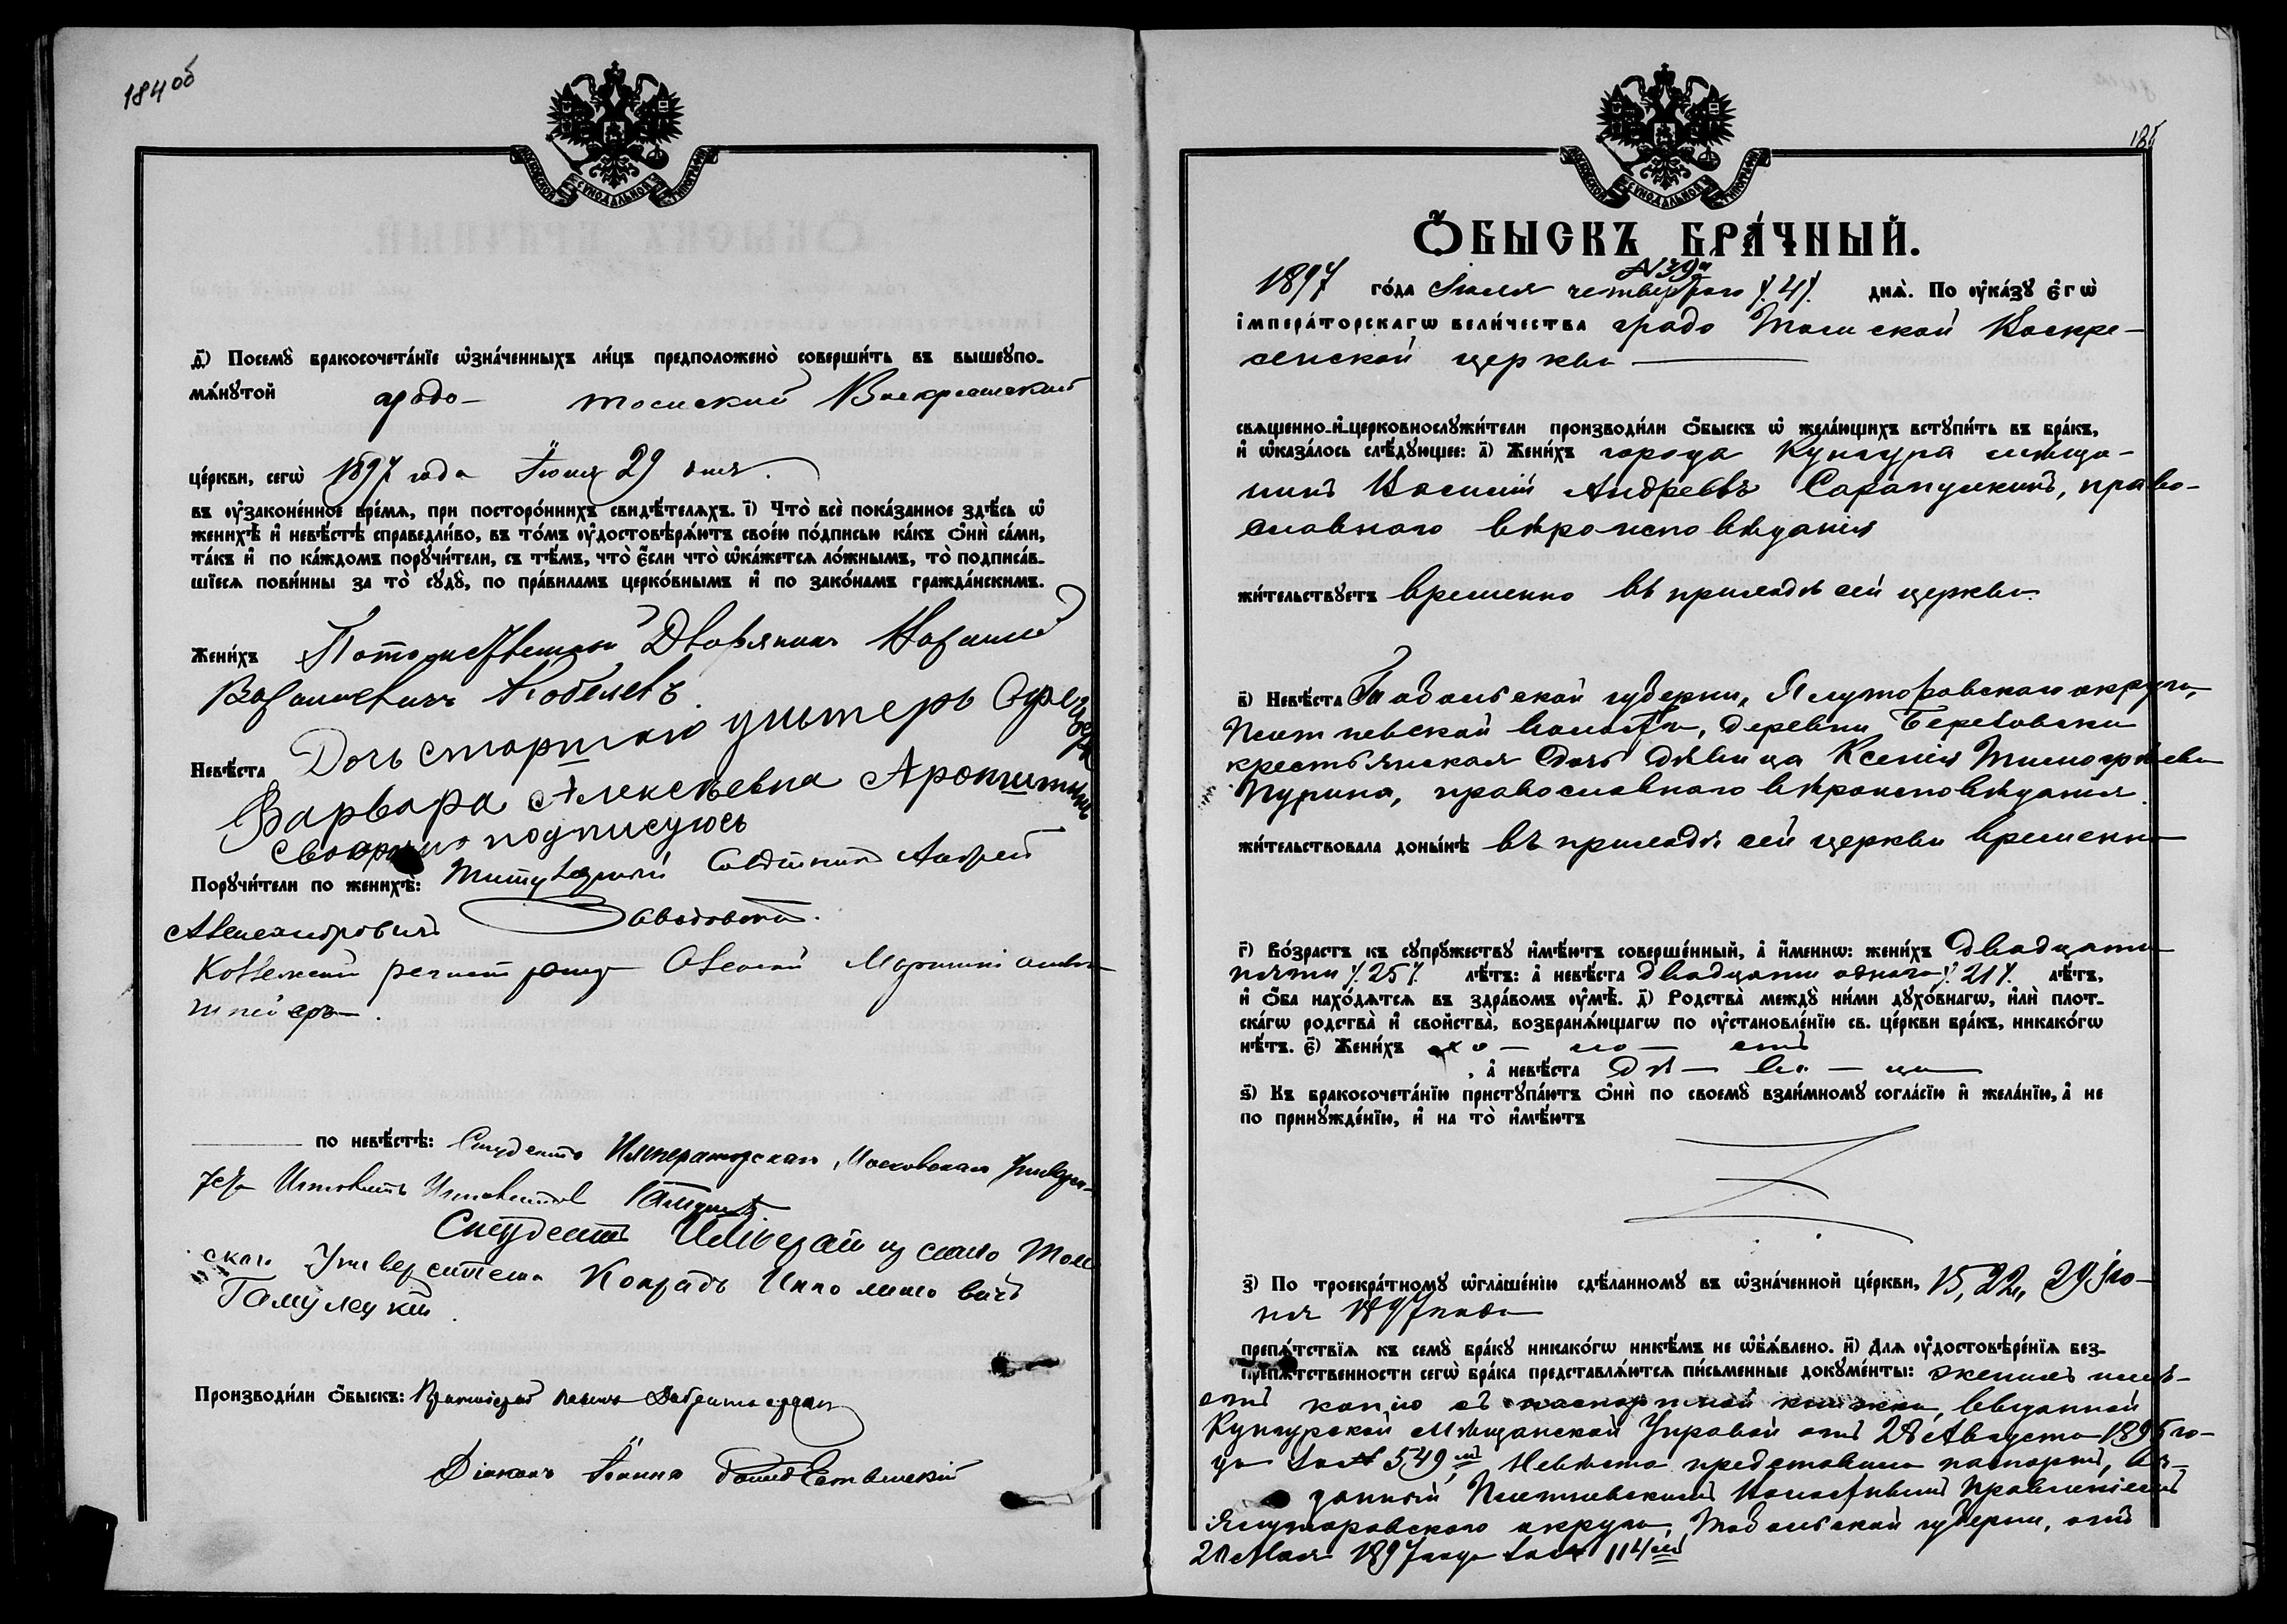 184об
МОСКОВСКОЙ СѴНОДАЛЬНОЙ ТИПОГРАФІИ
д҃) Посемꙋ̀ бракосочета́нїе ѡ҆зна́ченныхъ ли́цъ предположено̀ соверши́ть въ вышеꙋпо-
мѧ́нꙋтой градо- Томской Воскресенской
це́ркви, сегѡ̀ 1897 года Іюня 29 дня.
въ ᲂу҆законе́нное вре́мѧ, при посторо́ннихъ свидѣ́телѧхъ. і҃) Что̀ всѐ пока́занное здѣ́сь ѡ҆
женихѣ̀ и҆ невѣ́стѣ справедли́во, въ то́мъ ᲂу҆достовѣрѧ́ютъ свое́ю по́дписью ка́къ ѻ҆нѝ са́ми,
та́къ и҆ по ка́ждомъ порꙋчи́тели, съ тѣ́мъ, что̀ є҆́сли что̀ ѡ҆ка́жетсѧ ло́жнымъ, то̀ подписа́в-
шїесѧ пови́нны за то̀ сꙋдꙋ̀, по пра́виламъ церко́внымъ и҆ по зако́намъ гражда́нскимъ.
Жени́хъ Потомственный Дворянинъ
Невѣ́ста Дочь старшаго унтеръ Офицера
Варвара Алексѣевна
подписуюсь
Порꙋчи́тели по женихѣ̀: Титулярный Совѣтникъ Андрей
Александровичъ Заводовскій.
по невѣ́стѣ: Студентъ Императорскаго Московскаго Универси-
тета
Студентъ Императорскаго Том
скаго Университета Конрадъ
Производи́ли ѻ҆́быскъ:
Діаконъ Іоаннъ
185
МОСКОВСКОЙ СѴНОДАЛЬНОЙ ТИПОГРАФІИ
Ѻ҆БЫСКЪ БРА́ЧНЫЙ.
N 39й
1897 го́да Іюля четвертаго /.4/. днѧ̀. По ᲂу҆ка́зꙋ є҆гѡ̀
і҆мпера́торскагѡ вели́чества градо Томской Воскре-
сенской церкви
свѧщенно-и҆-церковнослꙋжи́тели производи́ли ѻ҆́быскъ ѡ҆ жела́ющихъ встꙋпи́ть въ бра́къ,
и҆ ѡ҆каза́лось слѣ́дꙋющее: а҃) Жени́хъ города Кунгура мѣща-
нинъ Василій Андреевъ Сарапулкинъ, право-
славнаго вѣроисповѣданія
жи́тельствꙋетъ временно въ приходѣ сей церкви.
в҃) Невѣ́ста Тобольской губерніи, Ялуторовскаго округа,
волости, деревни Березовки
крестьянская дочь дѣвица Ксенія Тимофѣева
Пурина, православнаго вѣроисповѣданія.
жи́тельствовала доны́нѣ въ приходѣ сей церкви временно
г҃) Во́зрастъ къ сꙋпрꙋ́жествꙋ и҆мѣ́ютъ соверше́нный, а҆ и҆́меннѡ: жени́хъ двадцати
пяти /.25/. лѣ́тъ: а҆ невѣ́ста двадцати одного /.21/. лѣ́тъ,
и҆ ѻ҆́ба нахо́дѧтсѧ въ здра́вомъ ᲂу҆мѣ̀. д҃) Родства̀ междꙋ̀ ни́ми дꙋхо́внагѡ, и҆лѝ плот-
ска́гѡ родства̀ и҆ сво́йства̀, возбранѧ́ющагѡ по ᲂу҆становле́нїю св. це́ркви бра́къ, никако́гѡ
нѣ́тъ. є҃) Жени́хъ хо— ло— стъ
, а҆ невѣ́ста дѣ— ви— ца
ѕ҃) Къ бракосочета́нїю пристꙋпа́ютъ ѻ҆нѝ по своемꙋ̀ взаи́мномꙋ согла́сїю и҆ жела́нїю, а҆ не
по принꙋжде́нїю, и҆ на то̀ и҆мѣ́ютъ
з҃) По троекра́тномꙋ ѡ҆глаше́нїю сдѣ́ланномꙋ въ ѡ҆зна́ченной це́ркви, 15, 22, 29 Ію-
ня 1897 года
препѧ́тствїѧ къ семꙋ̀ бра́кꙋ никако́гѡ никѣ́мъ не ѡ҆б̾ѧ́влено. и҃) Длѧ ᲂу҆достовѣре́нїѧ без-
препѧ́тственности сегѡ̀ бра́ка представлѧ́ютсѧ пи́сьменные докꙋме́нты: женихъ имѣ-
етъ копію съ паспортной книжки, выданной
Кунгурской Мѣщанской Управой отъ 28 Августа 189 го-
да за № 549мъ, Невѣста представила паспортъ, вы-
данный Волостнымъ Правленіемъ
Ялуторовскаго округа, Тобольской губерніи, отъ
Мая 1897 года за № 114мъ